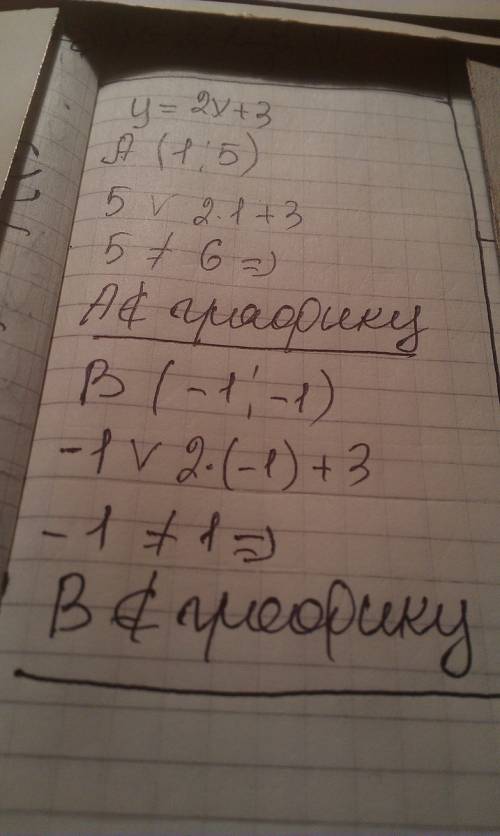 y = 2x+3
A (1; 5)
5 ∨ 2·1+3
5 ≠ 6 =>
A ∉ графику
B (-1; -1)
-1 ∨ 2·(-1)+3
-1 ≠ 1 =>
B ∉ графику